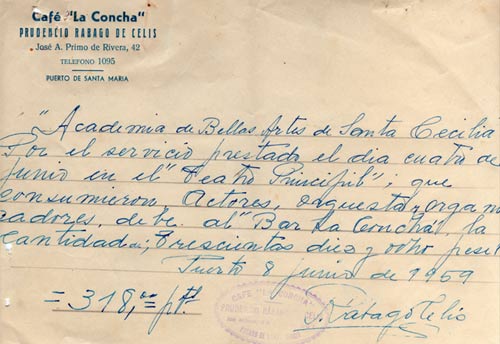 Café "La Concha"
PRUDENCIO RABAGO DE CELIS
José A. Primo de Rivera, 42
TELEFONO 1095
PUERTO DE SANTA MARIA
"Academia de Bellas Artes de Santa Cecilia
Por el servicio prestado el dia cuatro de
junio en el "Teatro Principal"; que
consumieron, Actores, orquesta y orga ni
zadores, debe. al "Bar La Concha", la
cantidad de; trescientas diez y ocho peset
Puerto 8 junio de 1959
= 318,00 pts
CAFE "LA CONCHA"
PRUDENCIO RABAGO
PUERTO DE SANTA MARIA
P. Rábago Celis